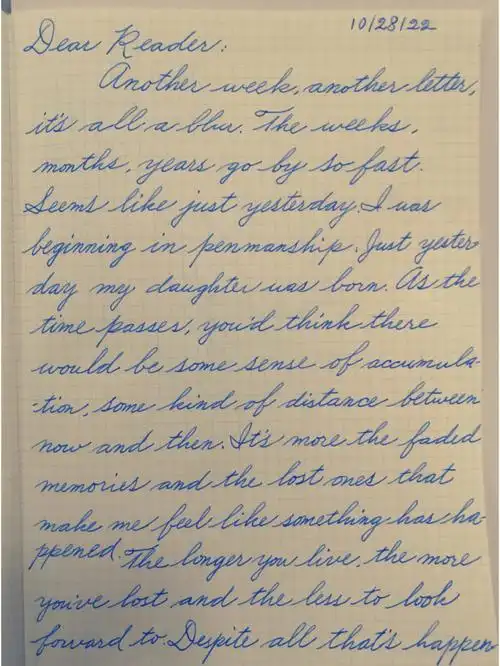 10/28/22
Dear Reader:
Another week, another letter,
it's all a blur. The weeks,
months, years go by so fast.
Seems like just yesterday, I was
beginning in penmanship. Just yester-
day my daughter was born. As the
time passes, you'd think there
would be some sense of accumula-
-tion, some kind of distance between
now and then. It's more the faded
memories and the lost ones that
make me feel like something has ha-
ppened. The longer you live, the more
you've lost and the less to look
forward to. Despite all that's happen